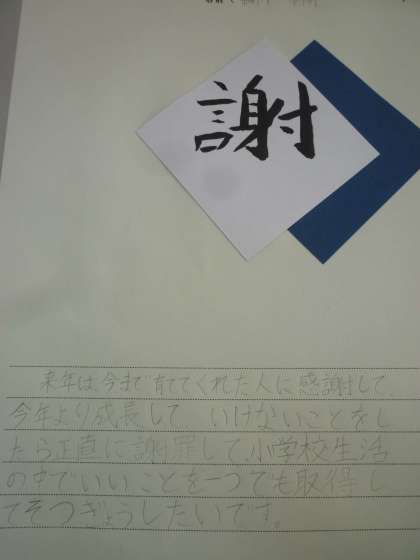 謝
来年は、今まで育ててくれた人に感謝して、
今年より成長して いけないことをし
たら正直に謝罪して、小学校生活
の中でいいことを一つでも取得し
てそつぎょうしたいです。